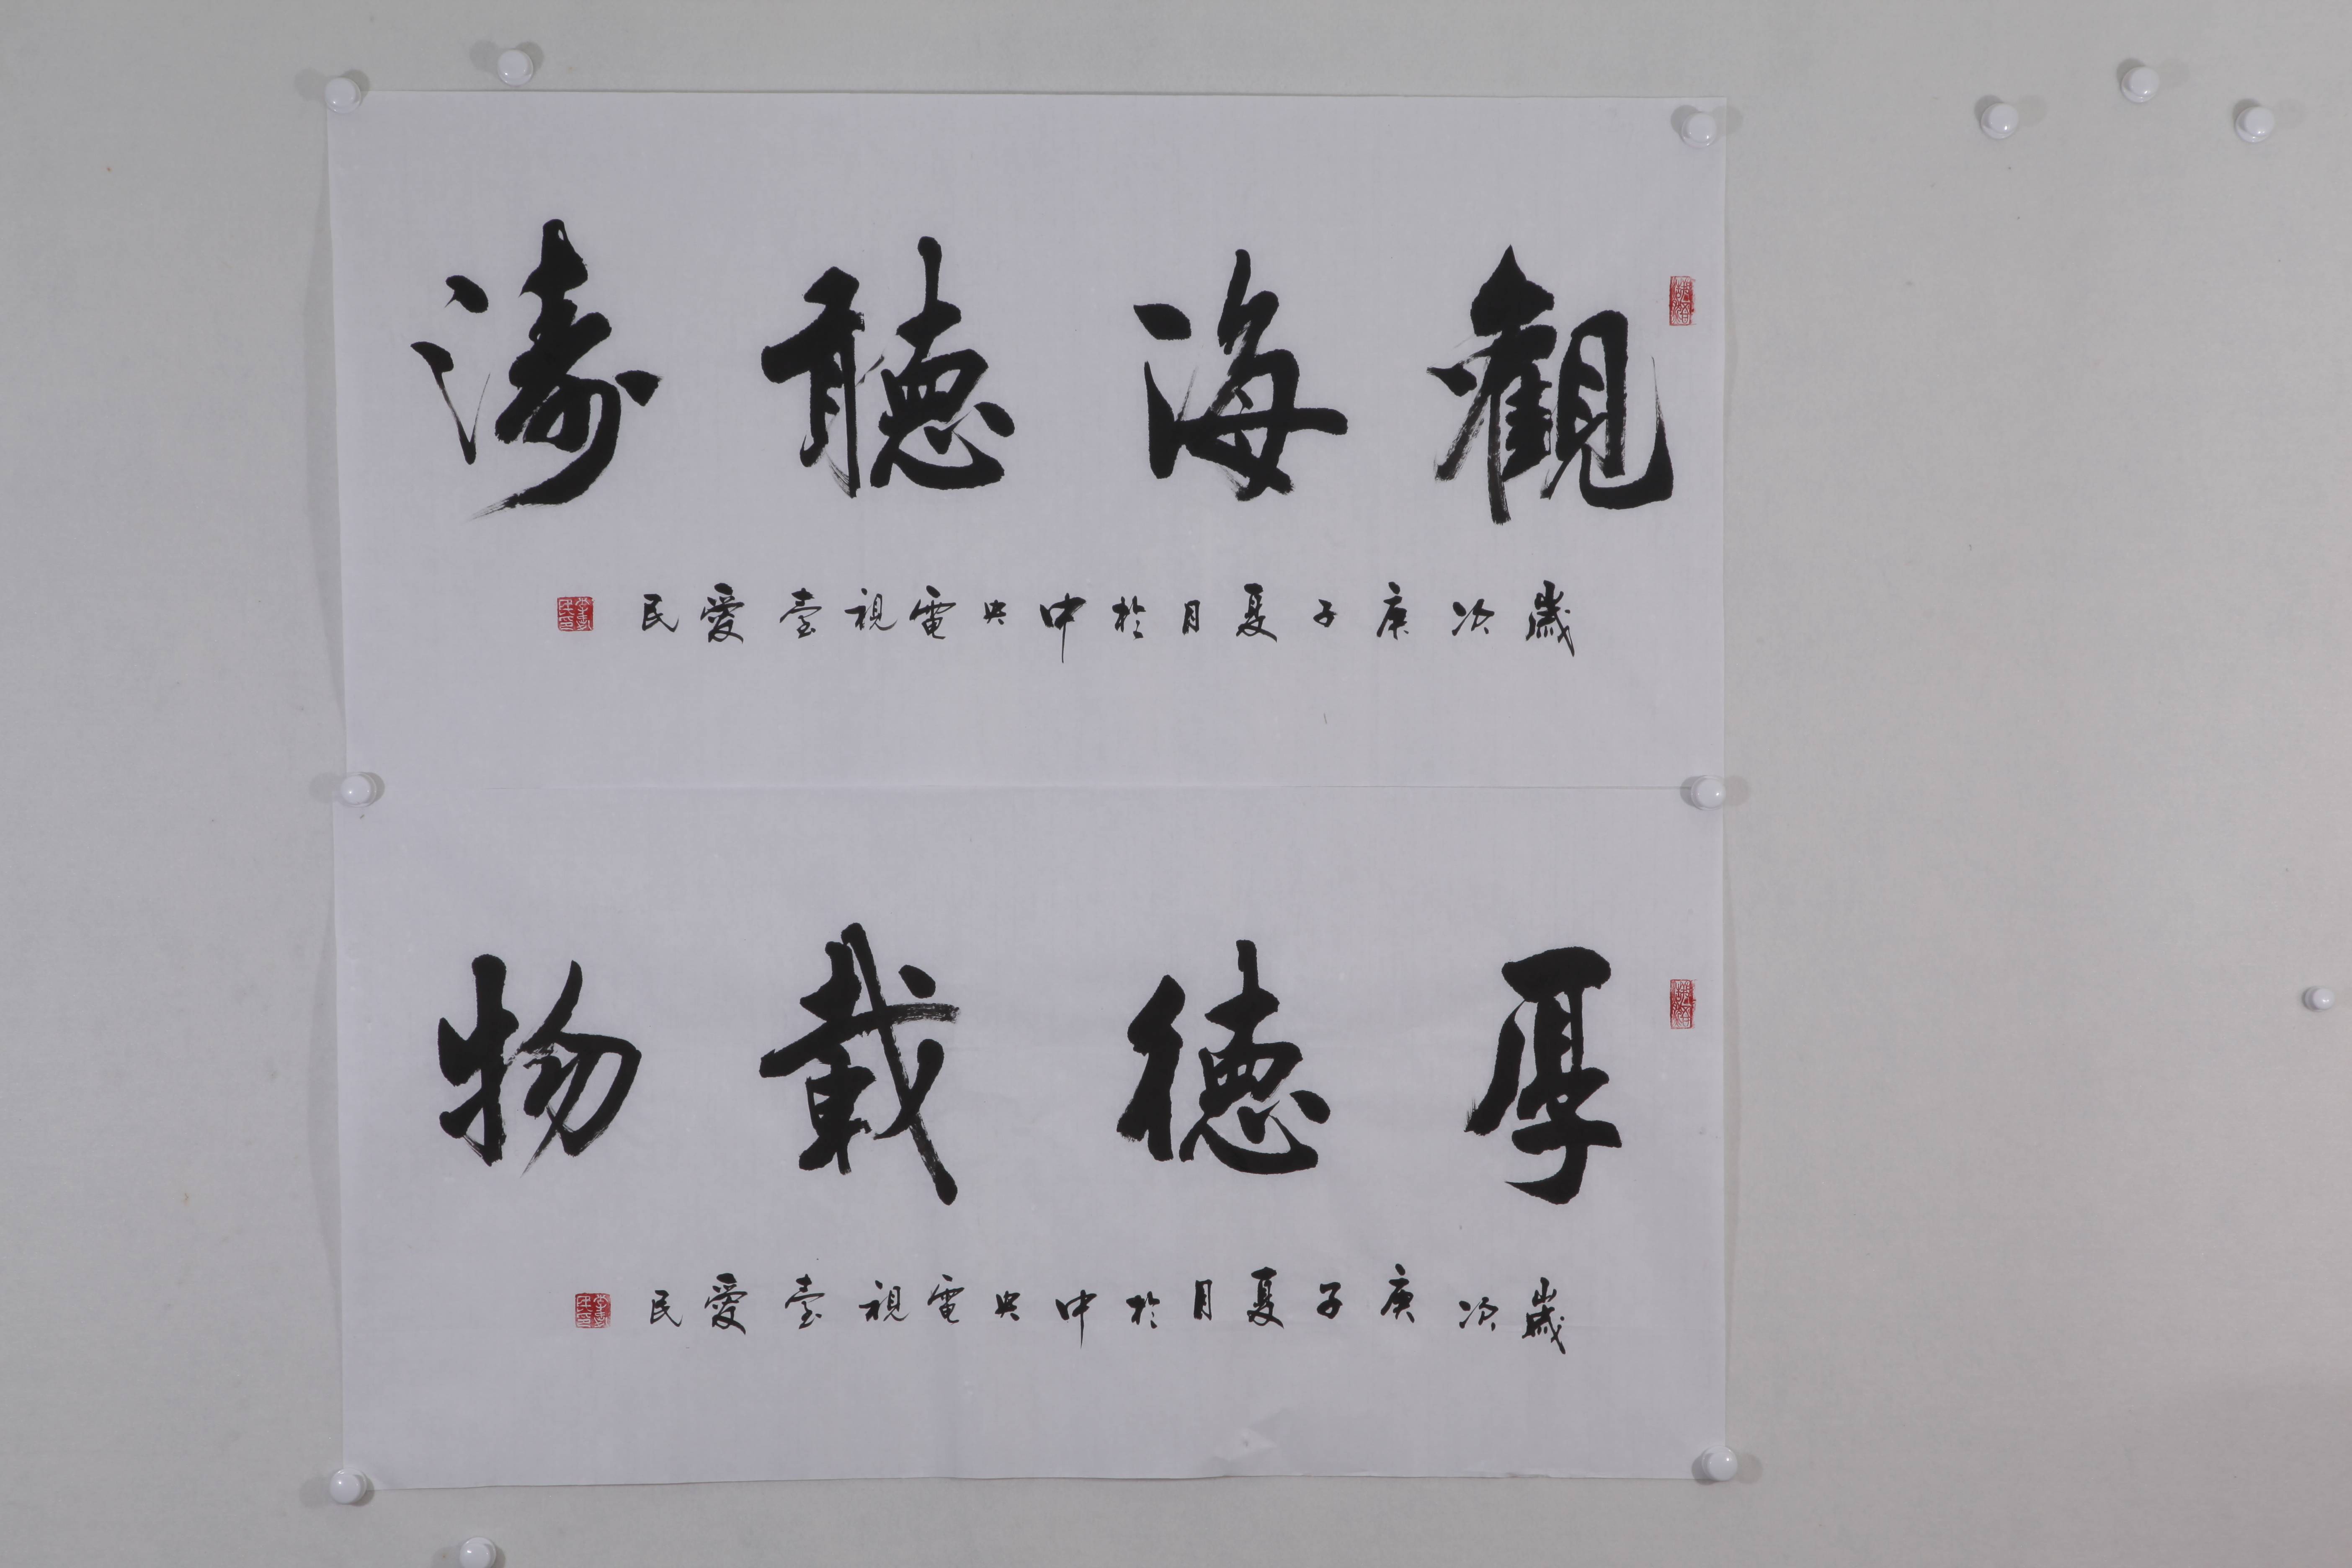 觀海聽濤
歲次庚子夏月於中央電視臺愛民
厚德載物
歲次庚子夏月於中央電視臺愛民